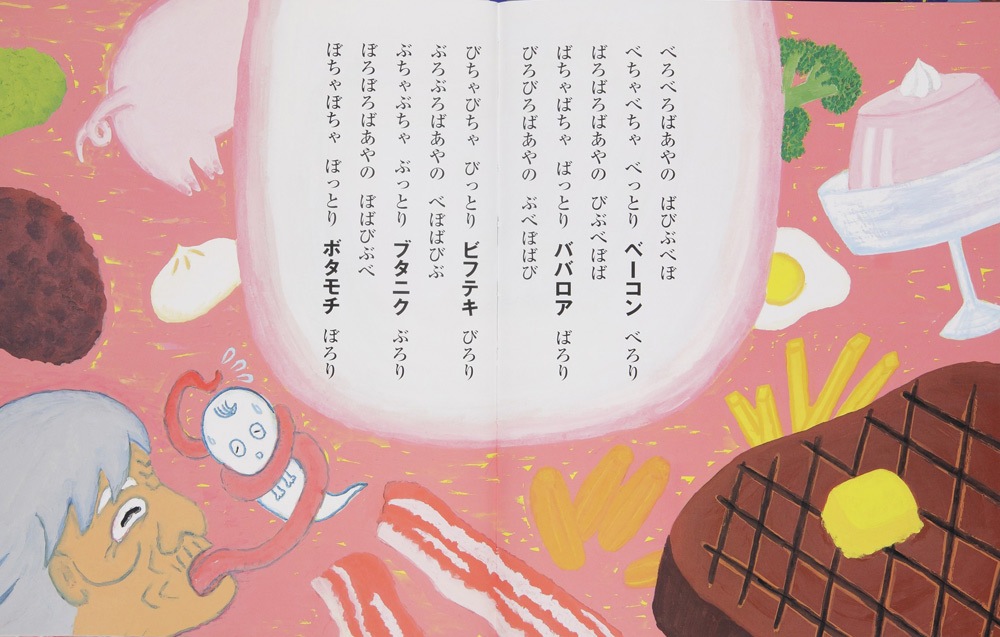 べろべろばあやの　ばびぶべぼ
べちゃべちゃ　べっとり　ベーコン　べろり
ばろばろばあやの　びぶべぼば
ばちゃばちゃ　ばっとり　ババロア　ばろり
びろびろばあやの　ぶべぼばび
びちゃびちゃ　びっとり　ビフテキ　びろり
ぶろぶろばあやの　べぼばびぶ
ぶちゃぶちゃ　ぶっとり　ブタニク　ぶろり
ぼろぼろばあやの　ぼばびぶべ
ぼちゃぼちゃ　ぼっとり　ボタモチ　ぼろり